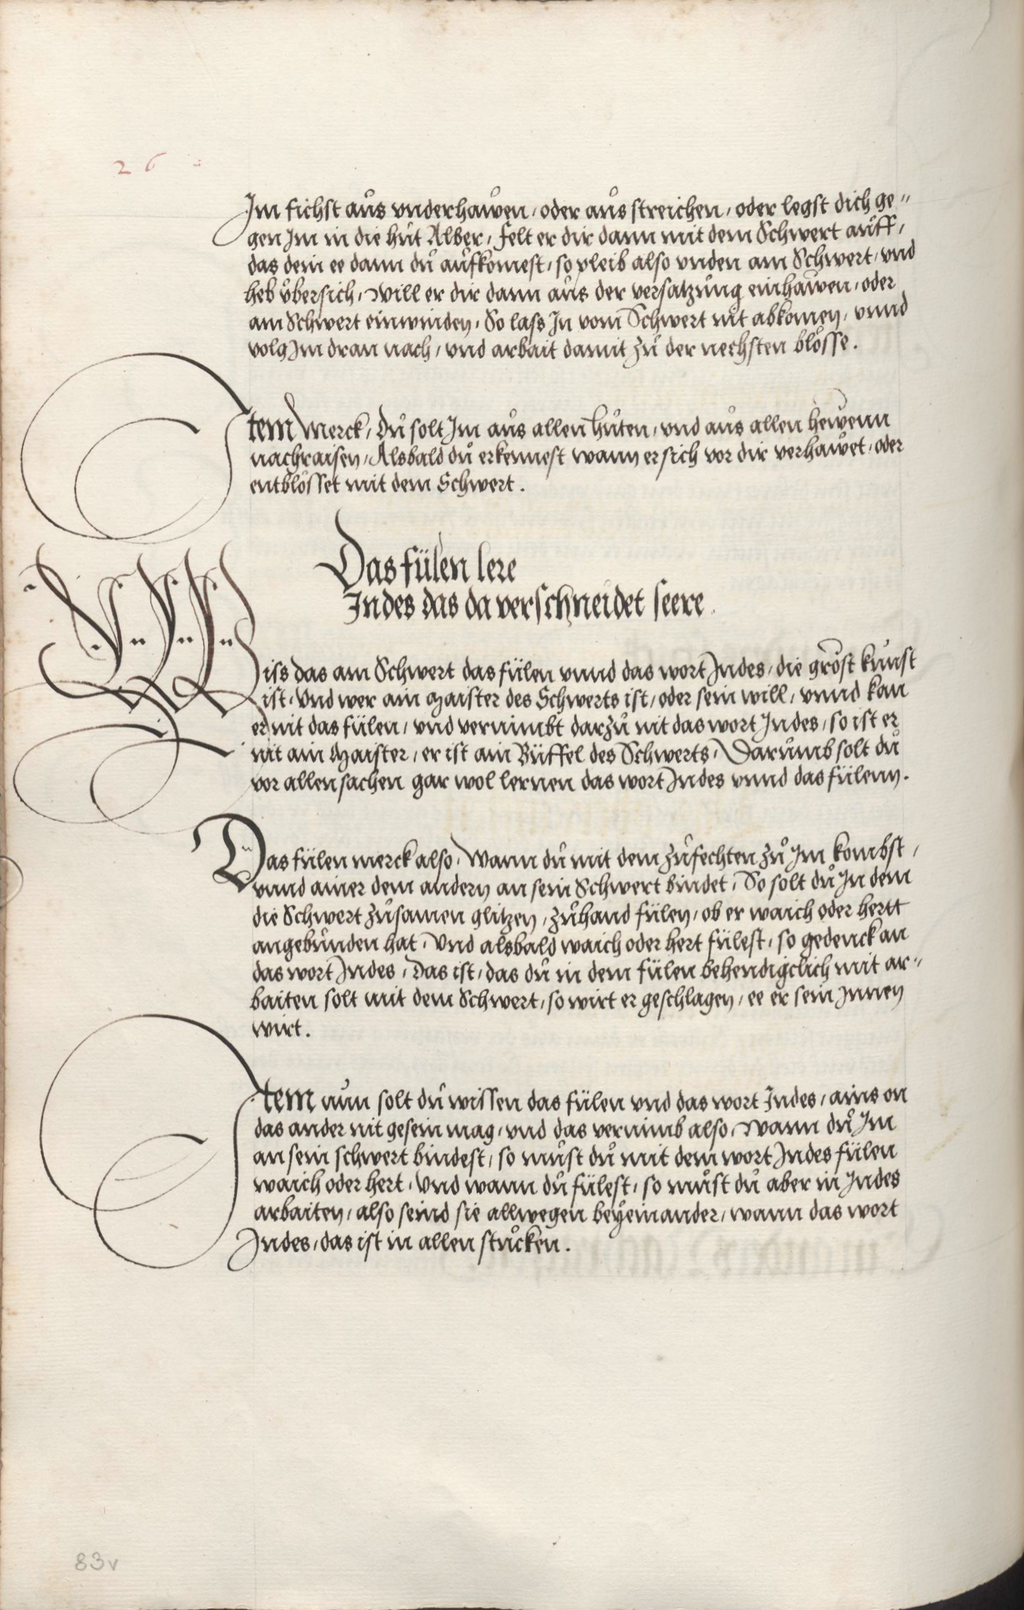 26
Im fichst aůs vnderhaẘen, oder aůs streichen, oder legst dich ge„
gen Im in die hůt Alber, felt er dir dann mit dem Schwert aůff,
das dein ee dann dů aůfkomest, so pleib also vnden am Schwert, vnd
heb übersich, Will er dir dann aůs der versatzůng einhaẘen, oder
am Schwert einwinden, So lass In vom Schwert nit abkomen, vnnd
volg Im dran nach, vnd arbait damit zů der nechsten blösse.
Item Merck, Dů solt Im aůs allen hůten, vnd aůs allen heẘenn
nachraisen, Alsbald dů erkennest wann er sich vor dir verhaẘet, oder
entblösset mit dem Schwert.
Das fülen lere
Indes das da verschneidet seere.
Wiss das am Schwert das fülen vnnd das wort Indes, die gröst kůnst
ist, Vnd wer ain Maister des Schwerts ist, oder sein will, vnnd kan
er nit das fülen, vnd vernimbt darzů nit das wort Indes, so ist er
nit ain Maister, er ist ain Büffel des Schwerts, Darůmb solt dů
vor allen sachen gar wol lernen das wort Indes vnnd das fülenn.
Das fülen merck also, Wann dů mit dem zůfechten zů Im kombst,
vnnd ainer dem andern an sein Schwert bindet, So solt dů In dem
die Schwert zůsamen glitzen, zůhand fülen, ob er waich oder hertt
angebůnden hat, Vnd alsbald waich oder hert fülest, so gedenck an
das wort Indes, Das ist, das dů in dem fülen behendigclich mit ar„
baiten solt mit dem Schwert, so wirt er geschlagen, ee er sein Innen
wirt.
Item nůn solt dů wissen das fülen vnd das wort Indes, ains on
das ander nit gesein mag, vnd das vernimb also, Wann dů Im
an sein schwert bindest, so můst dů mit dem wort Indes fülen
waich oder hert, Vnd wann dů fülest, so můst dů aber in Indes
arbaiten, also seind sie allwegen beÿeinander, wann das wort
Indes, das ist in allen stůcken.
83v